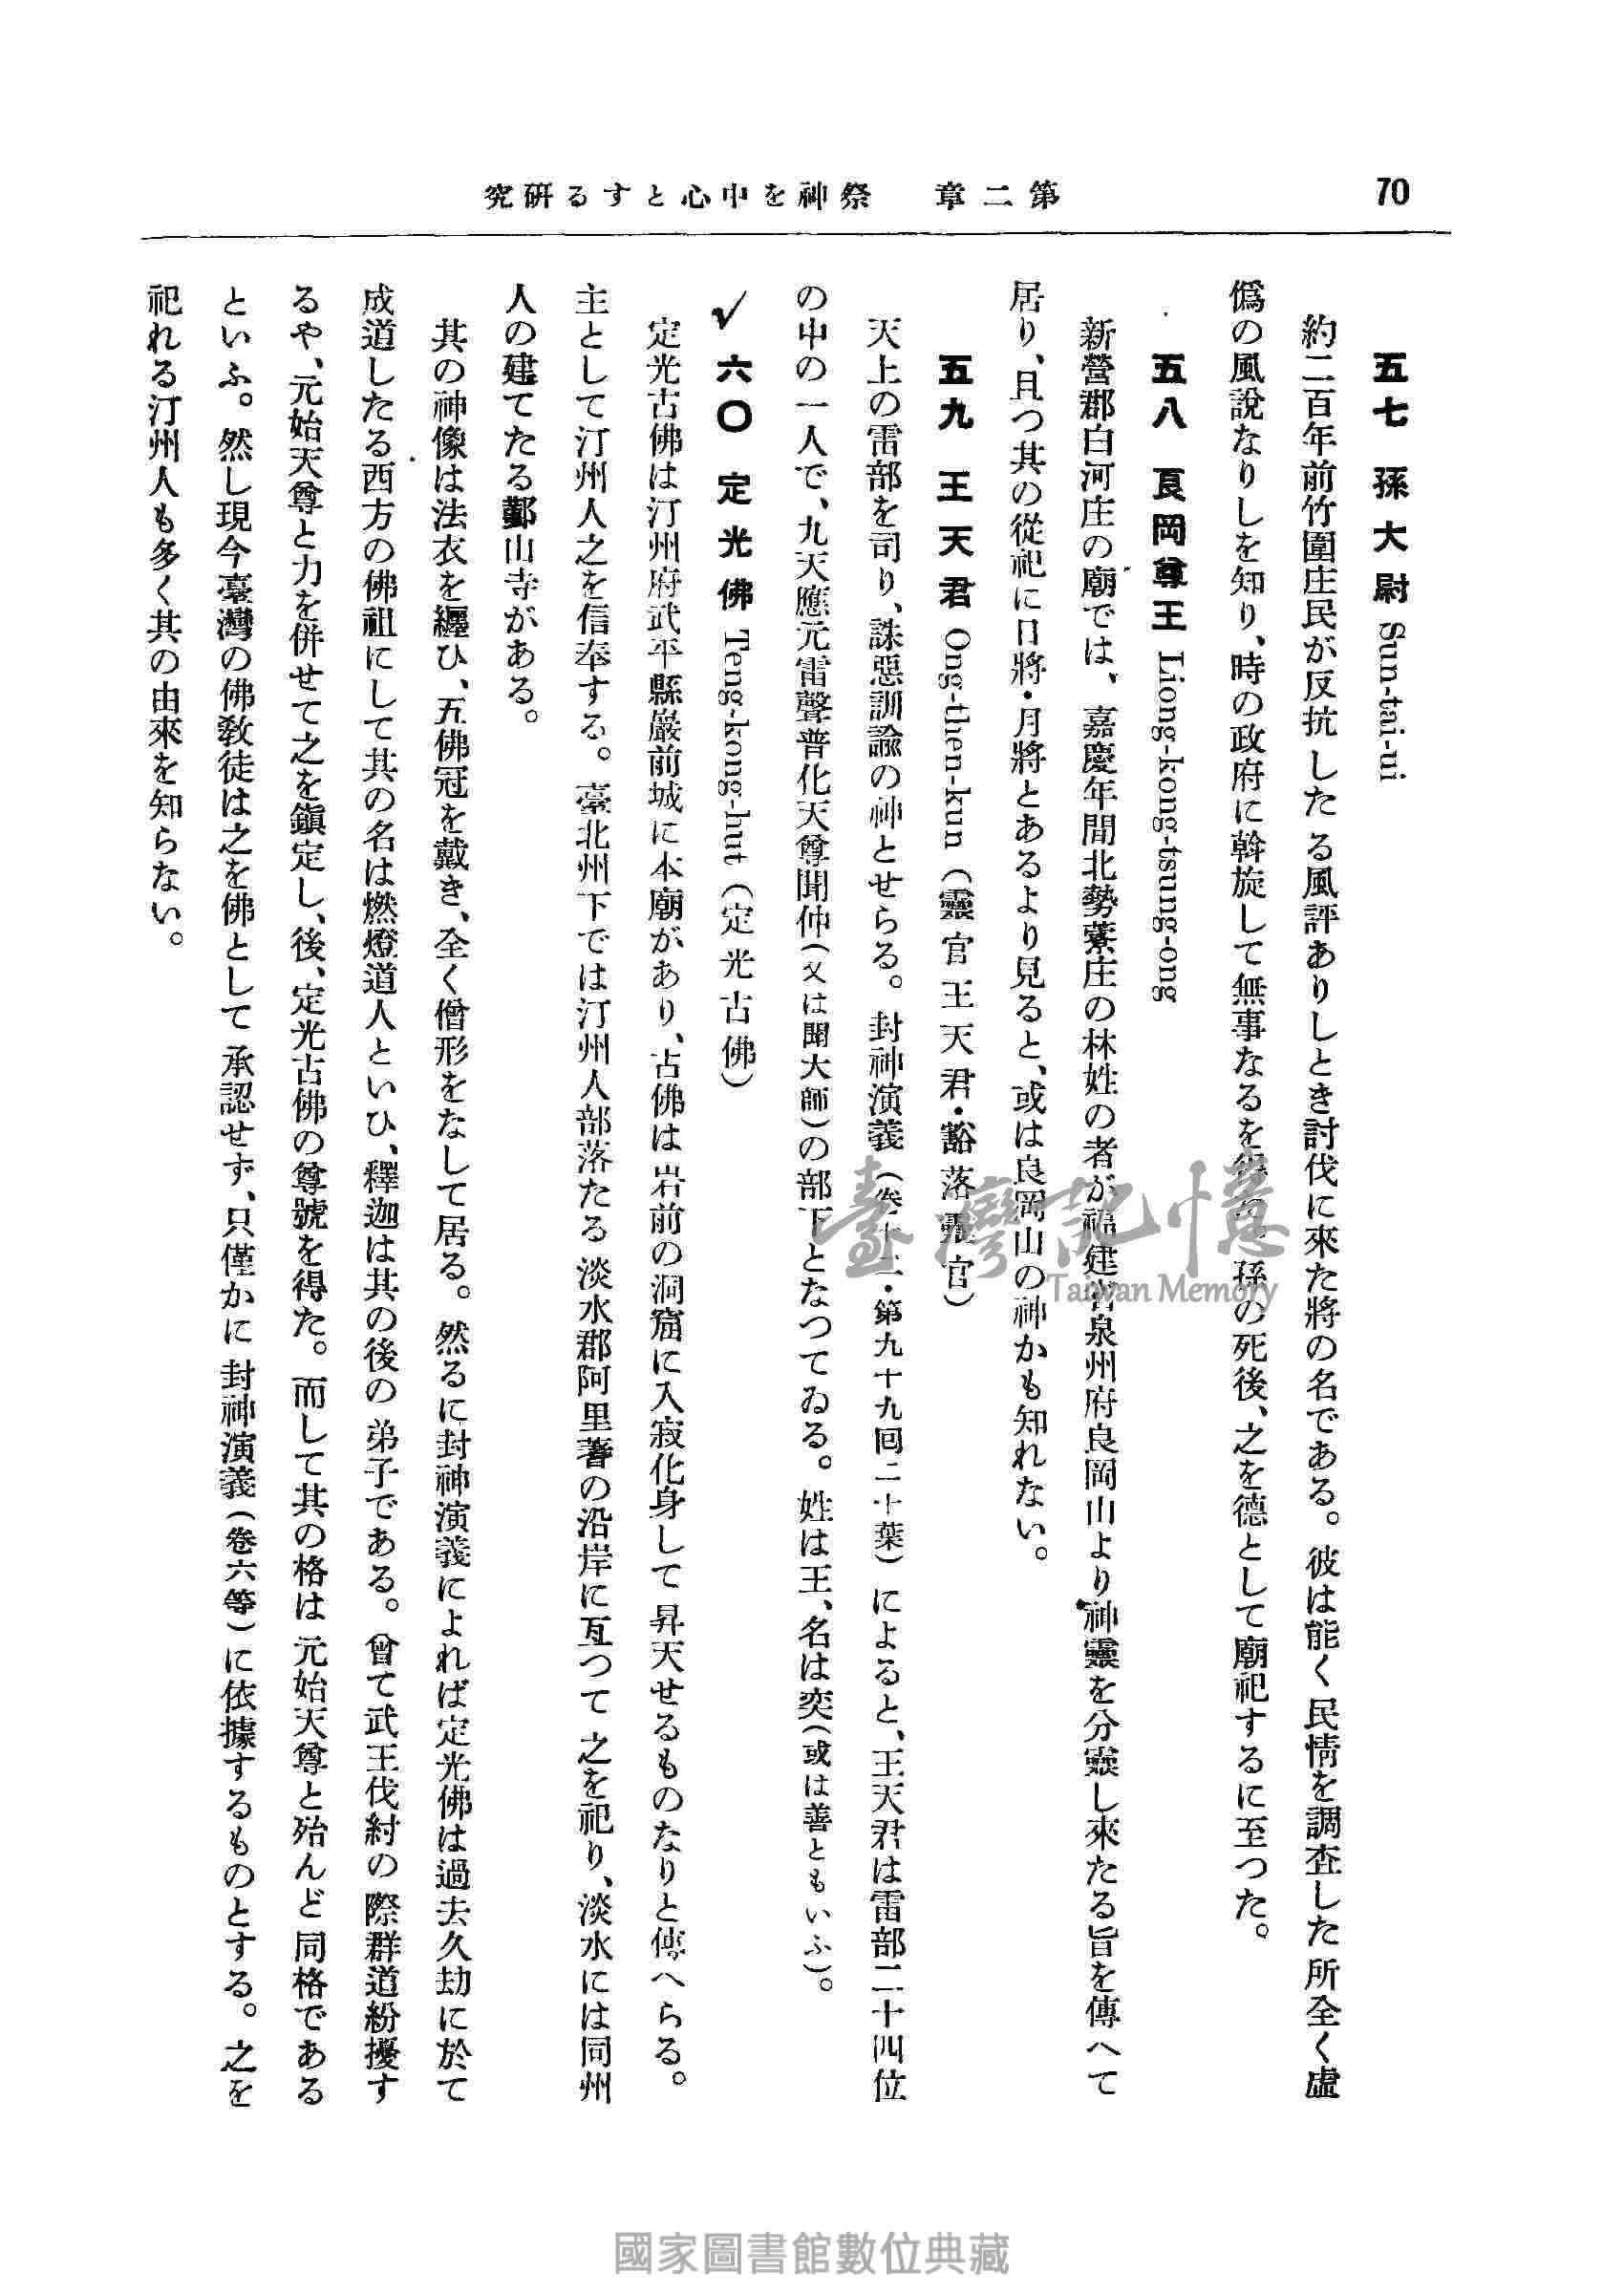 70
第二章　祭神を中心とする硏究
五七　孫大尉 Sun-tai-ui
約二百年前竹圍庄民が反抗したる風評ありしとき討伐に來た將の名である。彼は能く民情を調査した所全く虛
僞の風說なりしを知り、時の政府に斡旋して無事なるを　孫の死後、之を德として廟祀するに至つた。
五八　良岡尊王 Liong-kong-tsung-ong
新營郡白河庄の廟では、嘉慶年間北勢藔庄の林姓の者が福建省泉州府良岡山より神靈を分靈し來たる旨を傳へて
居り、且つ其の從祀に日將・月將とあるより見ると、或は良岡山の神かも知れない。
五九　王天君 Ong-then-kun（靈官王天君・豁落靈官）
天上の雷部を司り、誅惡訓諭の神とせらる。封神演義（卷十二・第九十九囘二十葉）によると、王天君は雷部二十四位
の中の一人で、九天應元雷聲普化天尊聞仲（又は聞大師）の部下となつてゐる。姓は王、名は奕（或は善ともいふ）。
✓ 六〇　定光佛 Teng-kong-hut（定光古佛）
定光古佛は汀州府武平縣巖前城に本廟があり、古佛は岩前の洞窟に入寂化身して昇天せるものなりと傳へらる。
主として汀州人之を信奉する。臺北州下では汀州人部落たる淡水郡阿里菶の沿岸に亙つて之を祀り、淡水には同州
人の建てたる鄞山寺がある。
其の神像は法衣を纒ひ、五佛冠を戴き、全く僧形をなして居る。然るに封神演義によれば定光佛は過去久劫に於て
成道したる西方の佛祖にして其の名は燃燈道人といひ、釋迦は其の後の弟子である。曾て武王伐紂の際群道紛擾す
るや、元始天尊と力を併せて之を鎭定し、後、定光古佛の尊號を得た。而して其の格は元始天尊と殆んど同格である
といふ。然し現今臺灣の佛敎徒は之を佛として承認せず、只僅かに封神演義（卷六等）に依據するものとする。之を
祀れる汀州人も多く其の由來を知らない。
臺灣記憶
Taiwan Memory
國家圖書館數位典藏